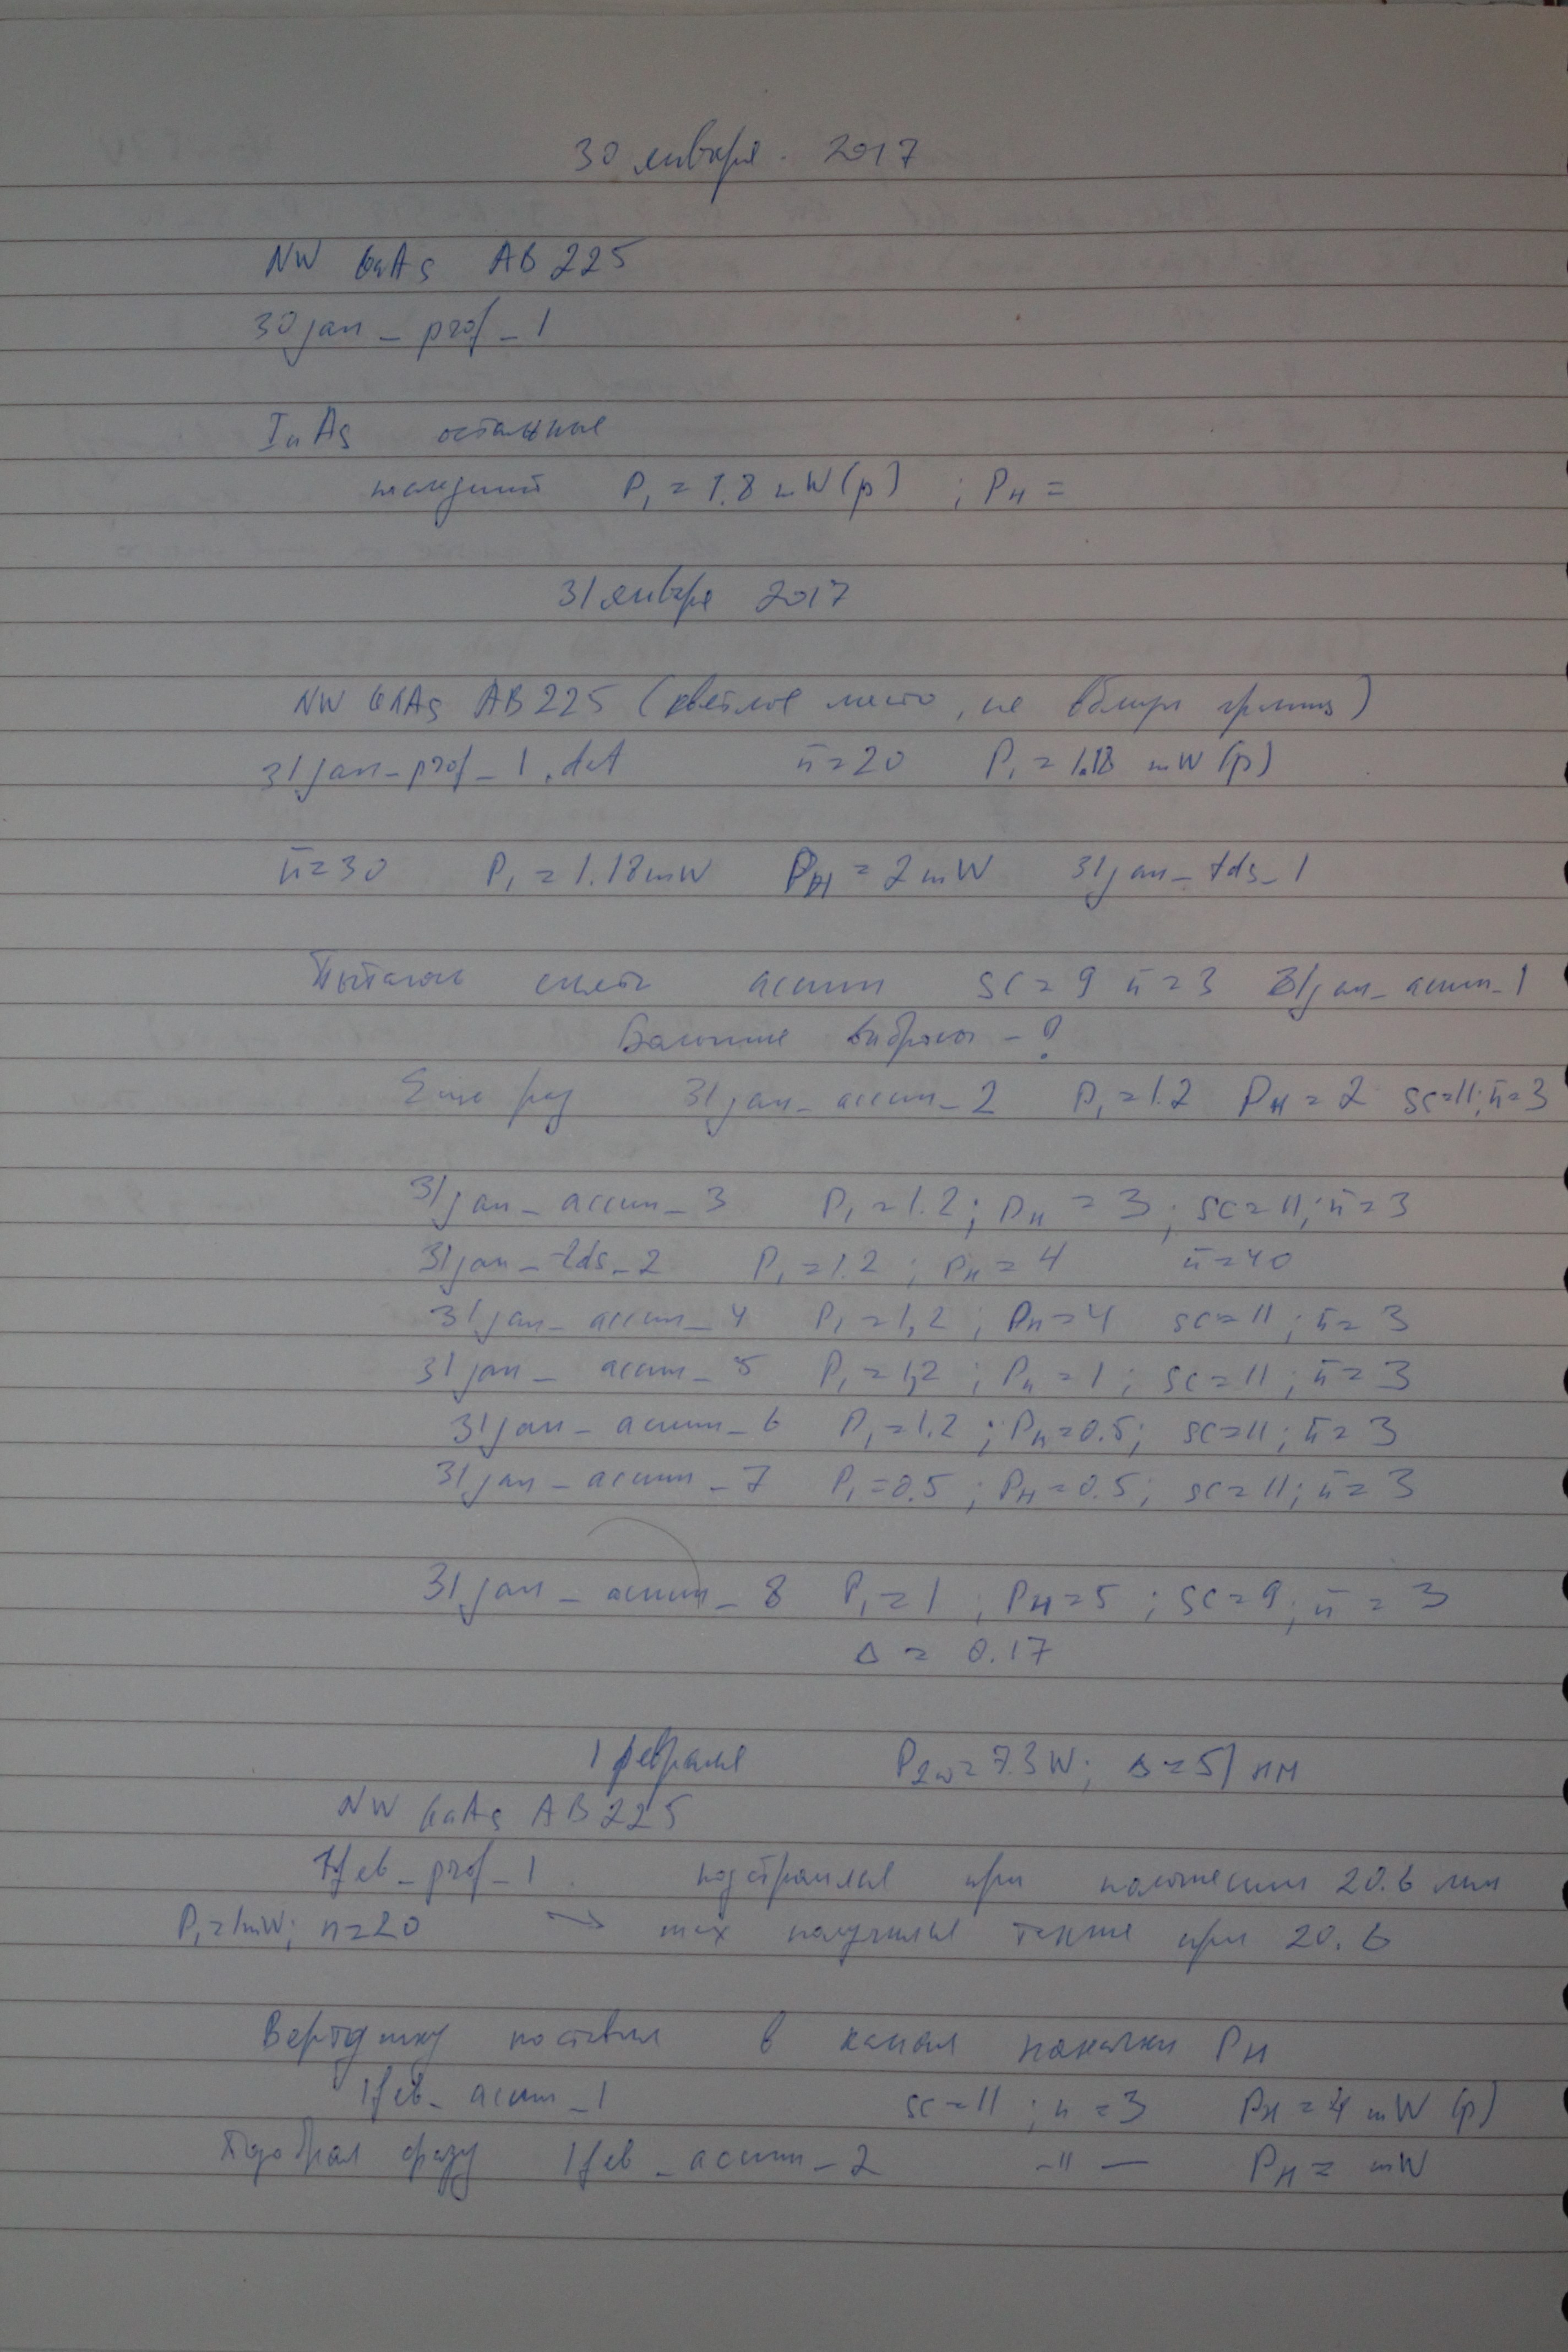 30 января. 2017
NW GaAs AB 225
30jan_prof_1
InAs остальные
P₁ = 1.8 mW(p) ; Pн =
31 января 2017
NW GaAs AB225 (светлое место, не вблизи границы)
31jan_prof_1.dat n̄=20 P₁ = 1.18 mW (p)
n̄=30 P₁ = 1.18mW Pн = 2 mW 31jan_tds_1
Пытаюсь снять ассим sc = 9 n̄ = 3 31jan_ассим_1
Большие выбросы - ?
Еще раз 31jan_ассим_2 P₁=1.2 Pн = 2 sc=11; n̄=3
31jan_ассим_3 P₁=1.2; Pн = 3; sc=11; n̄=3
31jan_tds_2 P₁=1.2; Pн=4 n̄=40
31jan_ассим_4 P₁=1,2; Pн=4 sc=11; n̄=3
31jan_ассим_5 P₁=1,2; Pн=1; sc=11; n̄=3
31jan_ассим_6 P₁=1.2; Pн=0.5; sc=11; n̄=3
31jan_ассим_7 P₁=0.5; Pн=0.5; sc=11; n̄=3
31jan_ассим_8 P₁=1; Pн=5; sc=9; n̄=3
Δ = 0.17
1 февраля P₂ω=7.3W; Δ=51 нм
NW GaAs AB 225
1feb_prof_1 подстроился при положении 20.6 мм
P₁=1mW; n=20 → max получился также при 20.6
Вертушку поставил в канал накачки Pн
1feb_ассим_1 sc=11; n=3 Pн=4 mW (p)
Подобрал фазу 1feb_ассим_2 -"- Pн= mW